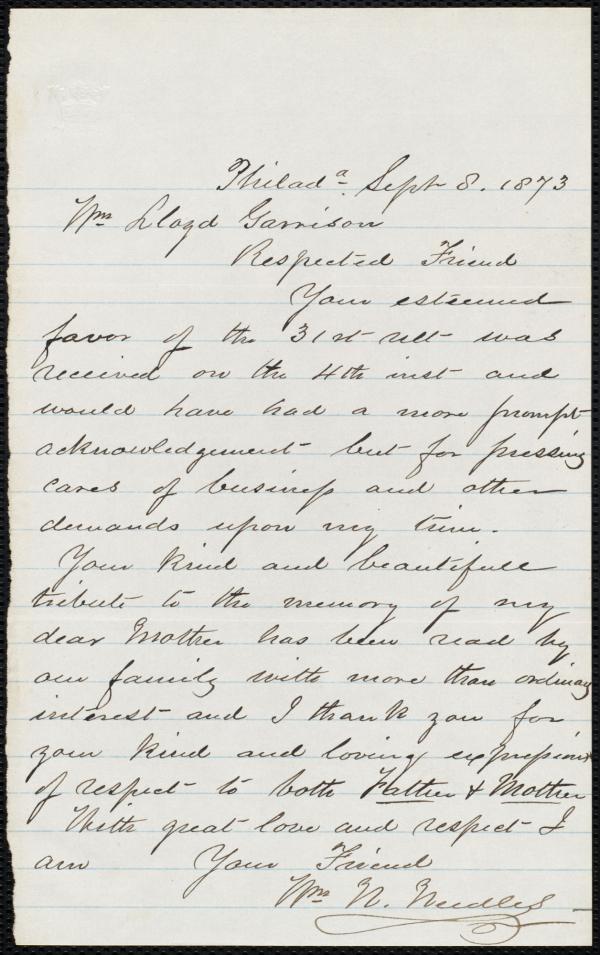 Philadª Sept 8. 1873
Wm Lloyd Garrison
Respected Friend
Your esteemed
favor of the 31st ult was
received on the 4th inst and
would have had a more prompt
acknowledgement but for pressing
cares of business and other
demands upon my time.
Your kind and beautifull
tribute to the memory of my
dear Mother has been read by
our family with more than ordinary
interest and I thank you for
your kind and loving expressions
of respect to both Father & Mother
With great love and respect I
am Your Friend
Wm N.